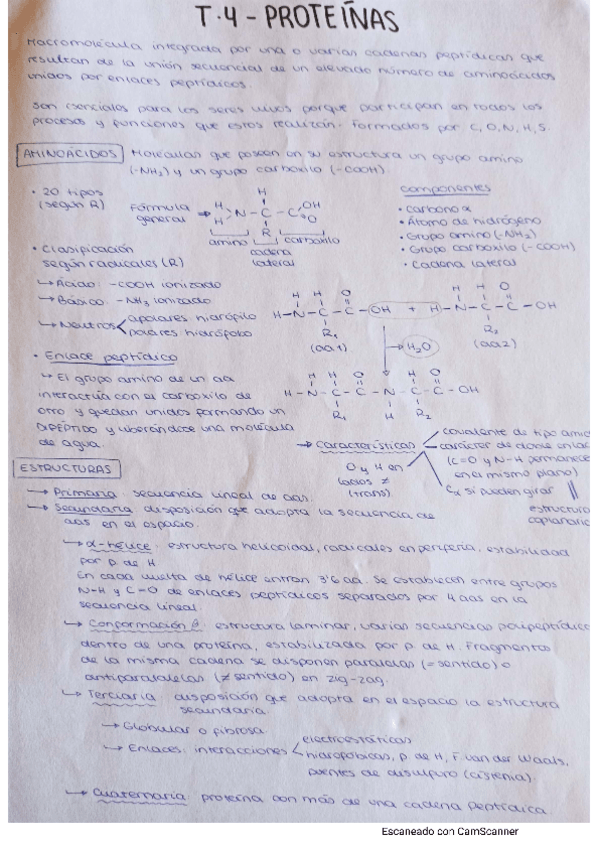 T.4 - PROTEÍNAS
Macromolécula integrada por una o varias cadenas peptídicas que
resultan de la unión secuencial de un elevado número de aminoácidos
unidos por enlaces peptídicos.
Son esenciales para los seres vivos porque participan en todos los
procesos y funciones que estos realizan. Formados por C, O, N, H, S.
AMINOÁCIDOS Moléculas que poseen en su estructura un grupo amino
(-NH₂) y un grupo carboxilo (-COOH).
• 20 tipos
(según R)
Fórmula
general
H H N - C - C OH O
H
R
amino
cadena
lateral
carboxilo
Componentes
• Carbono α
• Átomo de hidrógeno
• Grupo amino (-NH₂)
• Grupo carboxilo (-COOH)
• Cadena lateral
• Clasificación
según radicales (R)
↳ Ácido: -COOH ionizado
↳ Básico: -NH₂ ionizado
↳ Neutros < apolares hidrófilo
polares hidrófobo
H H O
H-N-C-C-OH + H-N-C-C-OH
R₁
R₂
(aa1)
(aa2)
→ H₂O
• Enlace peptídico
↳ El grupo amino de un aa
interactúa con el carboxilo de
otro y quedan unidos formando un
DIPÉPTIDO y liberándose una molécula
de agua.
H H O H H O
H - N - C - C - N - C - C - OH
R₁ H R₂
→ Características
covalente de tipo amid
carácter de doble enlac
(C=O y N-H permanece
en el mismo plano)
Cα sí pueden girar
estructura
coplanaria
O y H en
lados ≠
(trans)
ESTRUCTURAS
→ Primaria: secuencia lineal de aas.
→ Secundaria: disposición que adopta la secuencia de
aas en el espacio.
↳ α-hélice: estructura helicoidal, radicales en periferia, estabilidad
por p. de H
En cada vuelta de hélice entran 3'6 aa. Se establecen entre grupos
N-H y C=O de enlaces peptídicos separados por 4 aas en la
secuencia lineal.
↳ Conformación β: estructura laminar, varias secuencias polipeptídica
dentro de una proteína, estabilizada por p. de H. Fragmentos
de la misma cadena se disponen paralelas (= sentido) o
antiparalelas (≠ sentido) en zig-zag.
↳ Terciaria: disposición que adopta en el espacio la estructura
secundaria
→ Globular o fibrosa
→ Enlaces: interacciones < electroestáticas
hidrofóbicas, p. de H, F. van der Waals,
puentes de disulfuro (cisteína).
↳ Cuaternaria: proteína con más de una cadena peptídica.
Escaneado con CamScanner